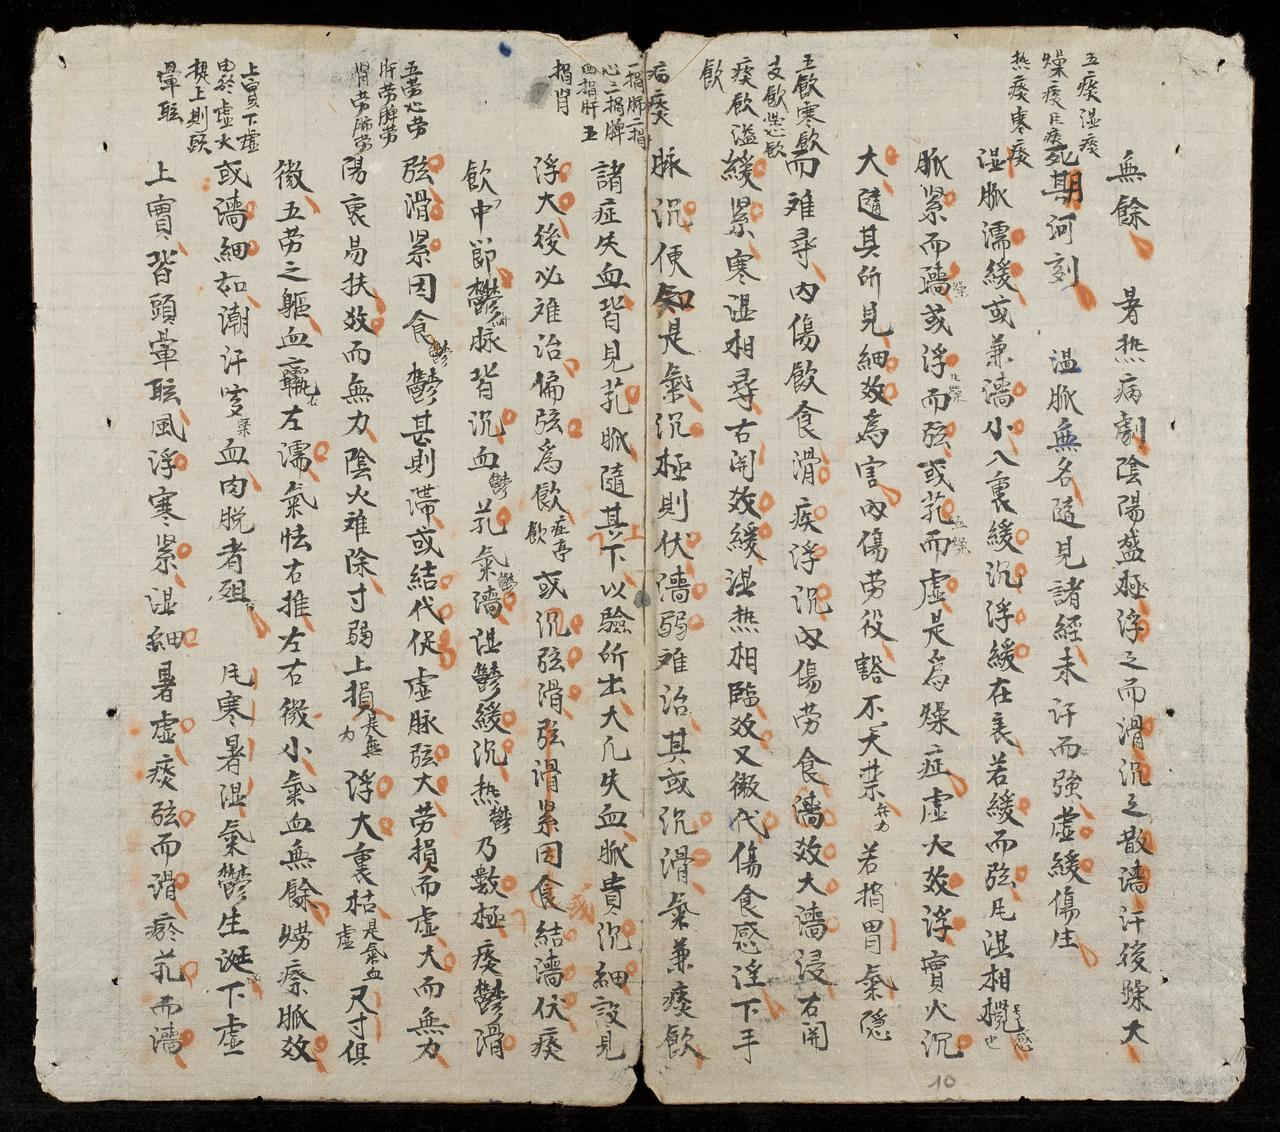 五痰湿痰
燥痰风痰
热痰寒痰
無餘 暑热病劇陰陽盛極浮之而滑沉之散濇汗後躁大
死期河刻 温脈無名隨見諸經未汗而強虚緩傷生
湿脈濡緩或兼濇小入裏緩沉浮緩在表若緩而弦风湿相攪
脈紧而濇或浮而弦或芤而虚是為燥症虚火效浮實火沉
大隨其所見細效為害内傷劳役豁不大禁若損胃氣隐
五飲寒飲
支飲懸飲
痰飲溢
飲
而难尋内傷飲食滑疾浮沉内傷劳食濇效大濇浸右関
緩紧寒湿相尋右関效緩湿热相臨效又微代傷食感淫下手
病痰
脉沉便知是氣沉極則伏濇弱难治其或沉滑氣兼痰飲
一損肺二損
心三損脾
四損肝五
損肾
諸症失血皆見芤脈隨其上下以驗所出大凡失血脈貴沉細設見
浮大後必难治偏弦為飲或沉弦滑弦滑紧因食結濇伏痰
飲中節鬱脉皆沉血鬱芤氣鬱濇湿鬱緩沉热鬱乃數極痰鬱滑
弦滑紧因食鬱鬱甚則滞或結代促虚脉弦大劳損而虚大而無力
五劳心劳
肝劳脾劳
肾劳肺劳
陽衰易扶效而無力陰火难除寸弱上損浮大裏枯尺寸俱
微五劳之軀血羸左濡氣怯右推左右微小氣血無餘劳瘵脈效
或濇細如潮汗咳血肉脱者殂 风寒暑湿氣鬱生涎下虚
上實下虚
由於虚火
揳上則頭
暈眩
上實皆頭暈眩風浮寒紧湿細暑虚痰弦而滑瘀芤而濇
10